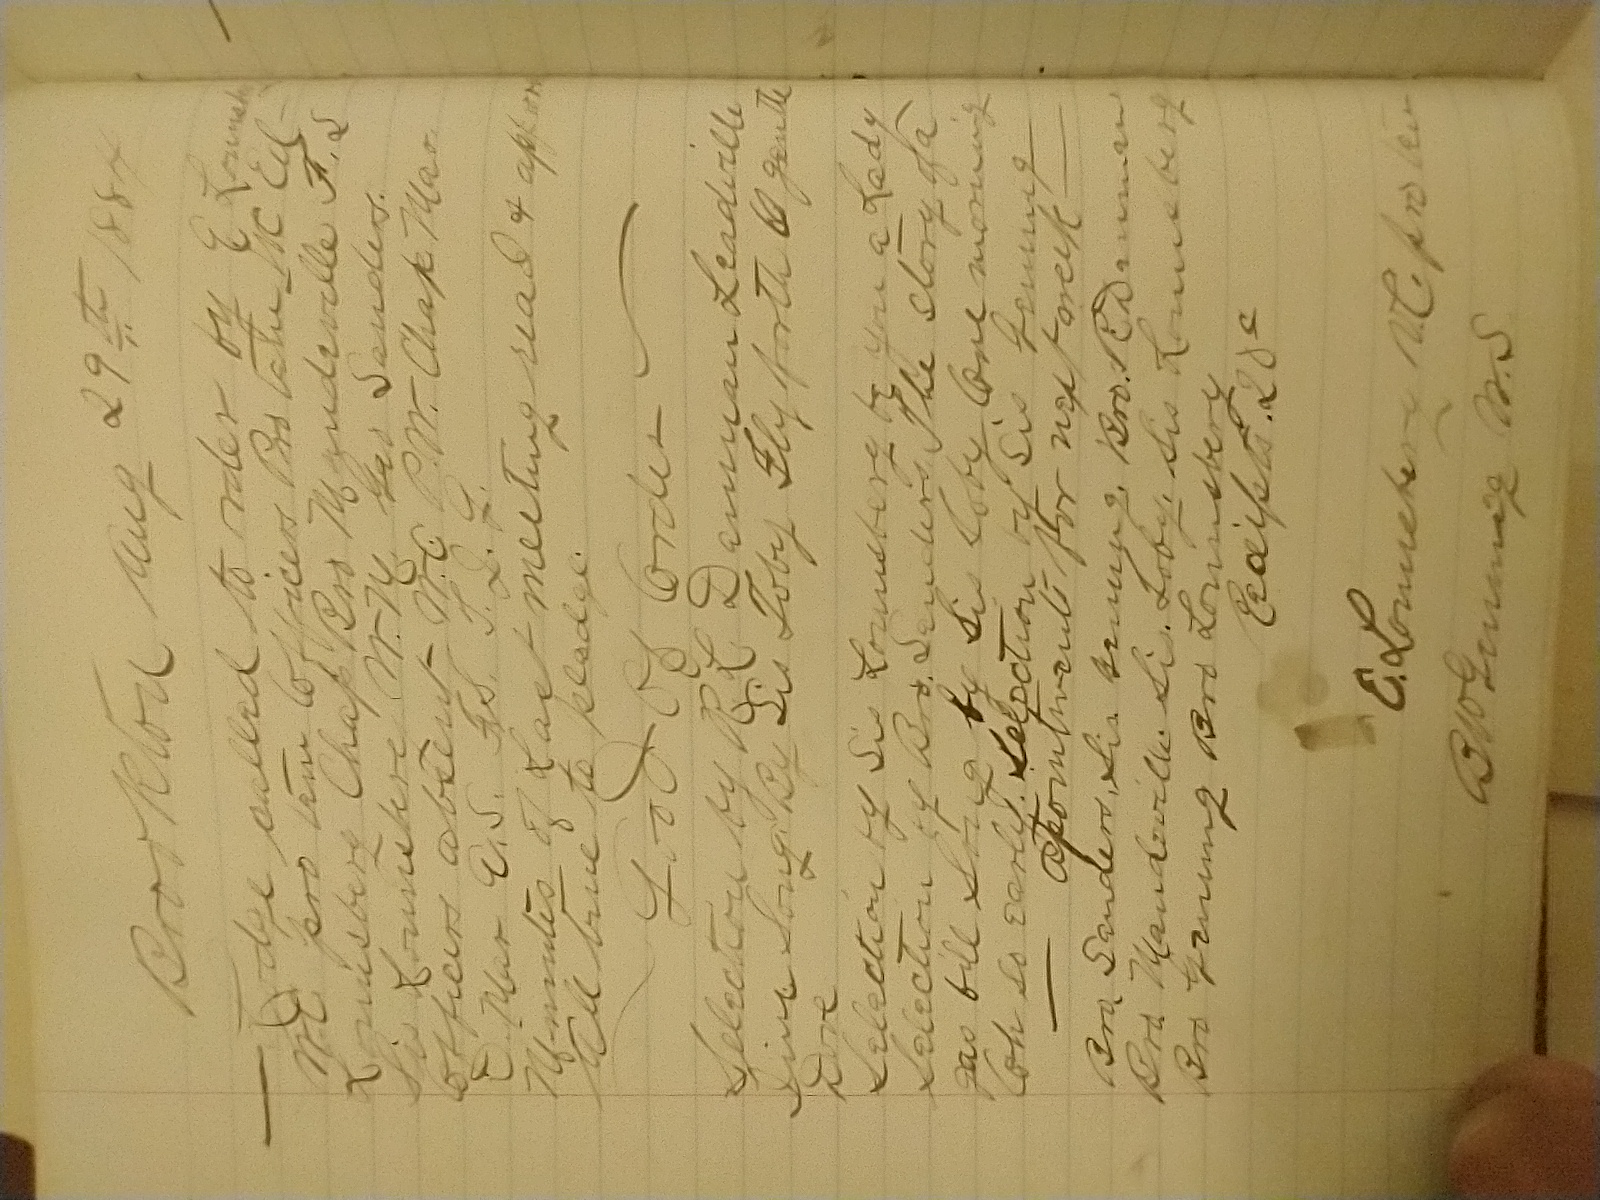 Brookton Aug 29th 1884
Lodge called to order by E Lounsb
W.C pro tem Officers Pro tem W C Ed
Lounsberg Chap Bro Mandeville F. S
Sis Lounsberg W. M. Geo Sanders.
Officers absent W.C. P.W. Chap Mar.
D. Mar A.S. F.S. T. I. G.
Minutes of Last meeting read & approv
All true to pledge.
Good Of Order
Selection by R L Denman Leadville
Jim Song By Sis Toby Fly forth O gentle
Dove
Selection by Sis Lounsberg be you a Lady
Selection by Bro. Sanders The story of a
gas bill Song by Sis Toby One morning
Oh so early. Selection by Sis Genung
Apointments for next week
Bro Sanders. Sis. Genung. Bro. R Denman
Bro Mandeville. Sis. Toby. Sis Lounsberg
Bro Genung Bro Lounsberg
Reciepts. 20c
E. Lounsberg W.C. pro tem
B W Genung W. S